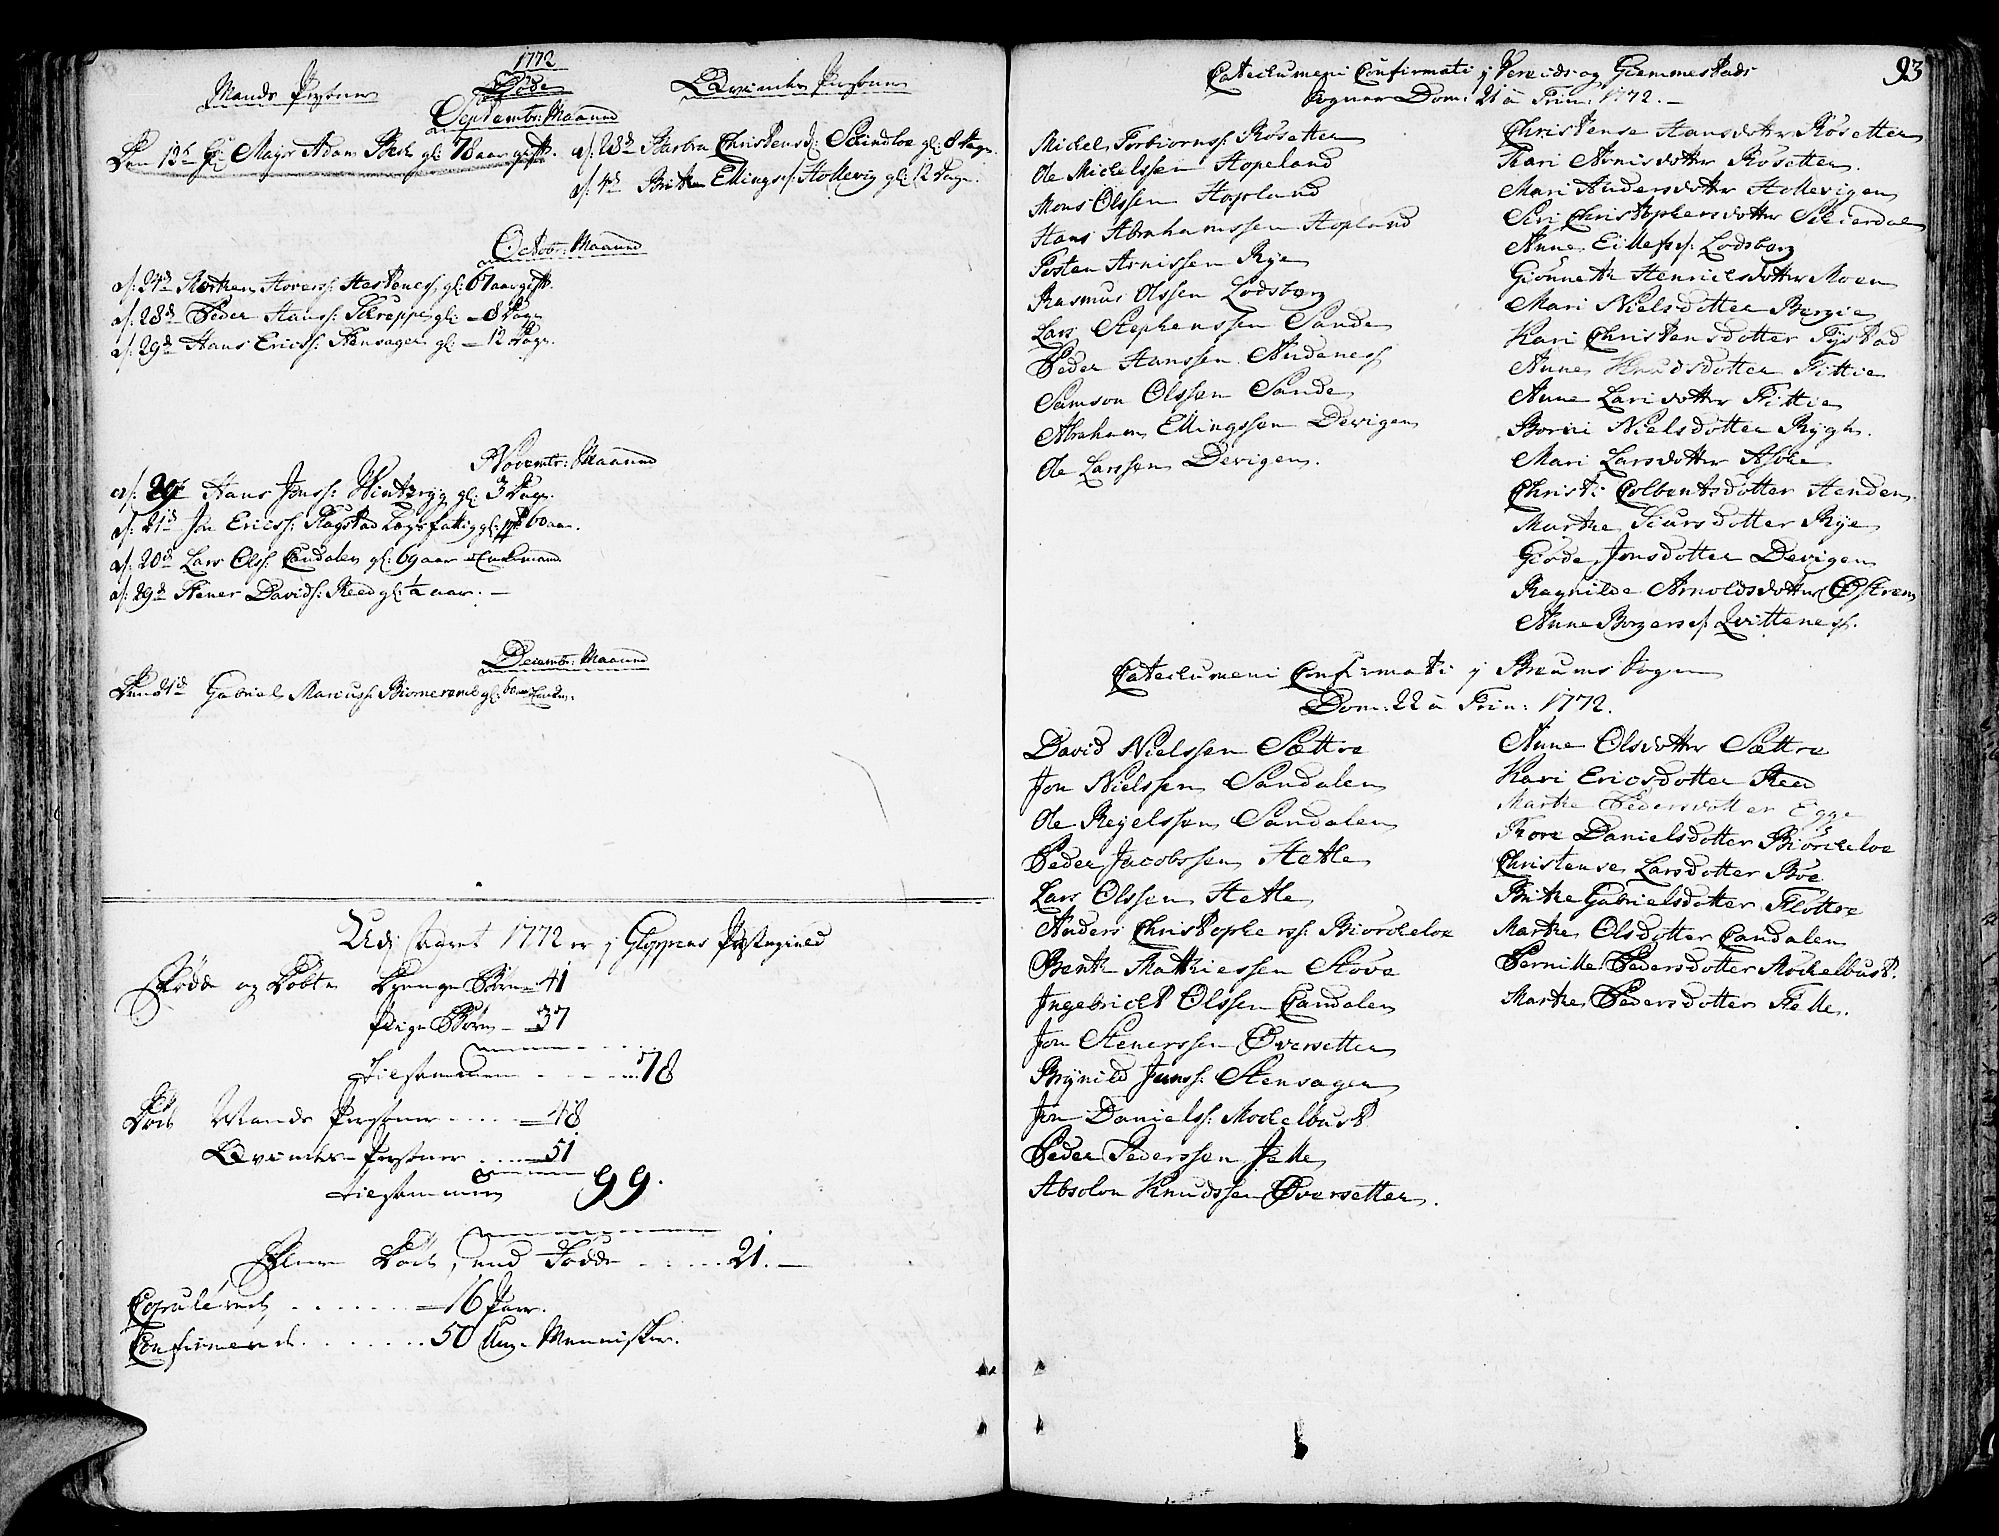 1772
Mands Persner Døde Qvindes Persner
Septembr: Maaned
Den 13de Hr Major Adam gl: 78 aar gift.
d: 28de Barbra Christensd: gl: 8 Dage.
d: 4de Brithe Ellings d: Hollevig gl: 12 Dage.
Octobr: Maaned
d: 24de Morthen Hovers: Hestenes gl: 67 aar gift.
d: 28de Peder Hanss: Skreppe gl: 8 Dage
d: 29de Hans Ericss: Stensager gl: 12 Dage.
Novembr: Maaned
d: Hans Jonss: gl: 3 Dage.
d: 21de Jon Ericss: gl: 60 aar.
d: 20de Lars Olss: Candalen gl: 69 aar Enkemand
d: 29de Stener Davids: Reed gl: ½ aar.
Decembr: Maaned
Den 21de Gabriel Mariuss:
Udi Aaret 1772 er j Gloppens Præstegield
Fødde og Døbte Drenge Børn 41
Pige Børn 37
Tilsammen 78
Døde Mands Persner 48
Qvindes Persner 51
Tilsammen 99.
Flere Døde, end Fødde 21.
Copulerede 16 Par.
Confirmerede 50 Unge Mennisker.
93
Catechumeni Confirmati j Vereids og Giemmestads
Sogner Dom: 21 à Trin: 1772.
Michel Torbiornss: Røsetter
Ole Michelssen Hopeland
Mons Olssen Hopland
Hans Abrahamssen Hopland
Tosten Arnissen Rye
Rasmus Olssen Lodsberg
Lars Stephenssen Sande
Peder Hanssen Andenes
Samson Olssen Sande
Abraham Ellingssen Devigen
Ole Larssen Devigen.
Christense Hansdotter Røsetter
Kari Arnisdotter Røsetter.
Mari Andersdotter Hollevigen
Siri Christophersdotter
Anne Lodsberg
Gionneth Henricsdotter Moen
Mari Nielsdotter Bergie
Kari Christensdotter Tystad
Anne Knudsdotter Fittie
Anne Larsdotter Fittie
Borni Nielsdotter Rygh.
Mari Larsdotter
Christi Colbentsdotter Henden.
Marthe Siursdotter Rye
Giøde Jonsdotter Devigen
Ragnilde Arnoldsdotter Østrem
Anne Borgers d. Qvittenes.
Catechumeni Confirmati j Breums Sogn
Dom: 22 à Trin: 1772.
David Nielssen Sættre
Jon Nielssen Sandalen
Ole Reyelssen Sandalen
Peder Jacobssen Hetle
Lars Olssen Hetle
Anders Christopherss: Biørcheloe
Benth Mathiessen Støve
Ingebricht Olssen Candalen
Jon Stenerssen Øversetter
Brynild Jonss: Stensager
Jon Danielss: Mochelbust
Peder Pederssen Felle
Absolon Knudssen Øversetter.
Anne Olsdotter Sættre
Kari Ericsdotter Reed
Marthe Pedersdotter Egge
Thore Danielsdotter Biørcheloe
Christense Larsdotter Bøe
Brithe Gabrielsdotter Fløttre
Marthe Olsdotter Candalen
Pernille Pedersdotter Mochelbust.
Marthe Pedersdotter Felle.